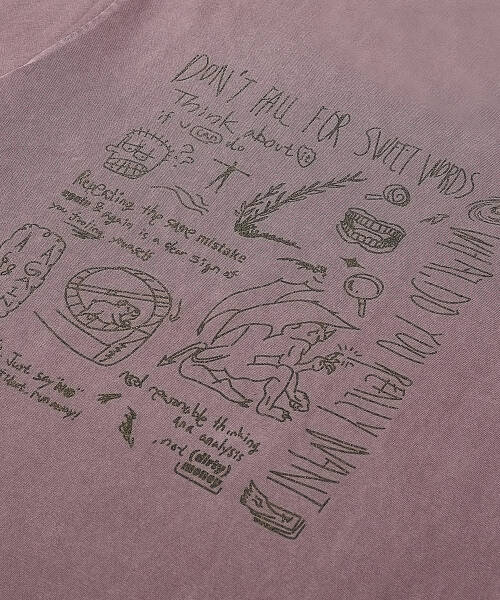 DON'T FALL FOR SWEET WORDS
Think about it
if u CAN do
??
Repeating the same mistake
again & again is a clear sign of
you fooling yourself
AGAIN
WHAT DO YOU REALLY WANT
Just say "NO"
run away!
need reasonable thinking
and analysis
not (dirty)
money